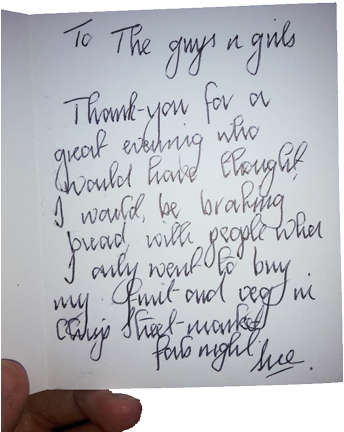 To The guys n girls
Thank-you for a
great evening who
would have thought
I would, be braking
bread, with people who
I only went to buy
my fruit and veg in
Street-market
forts night.